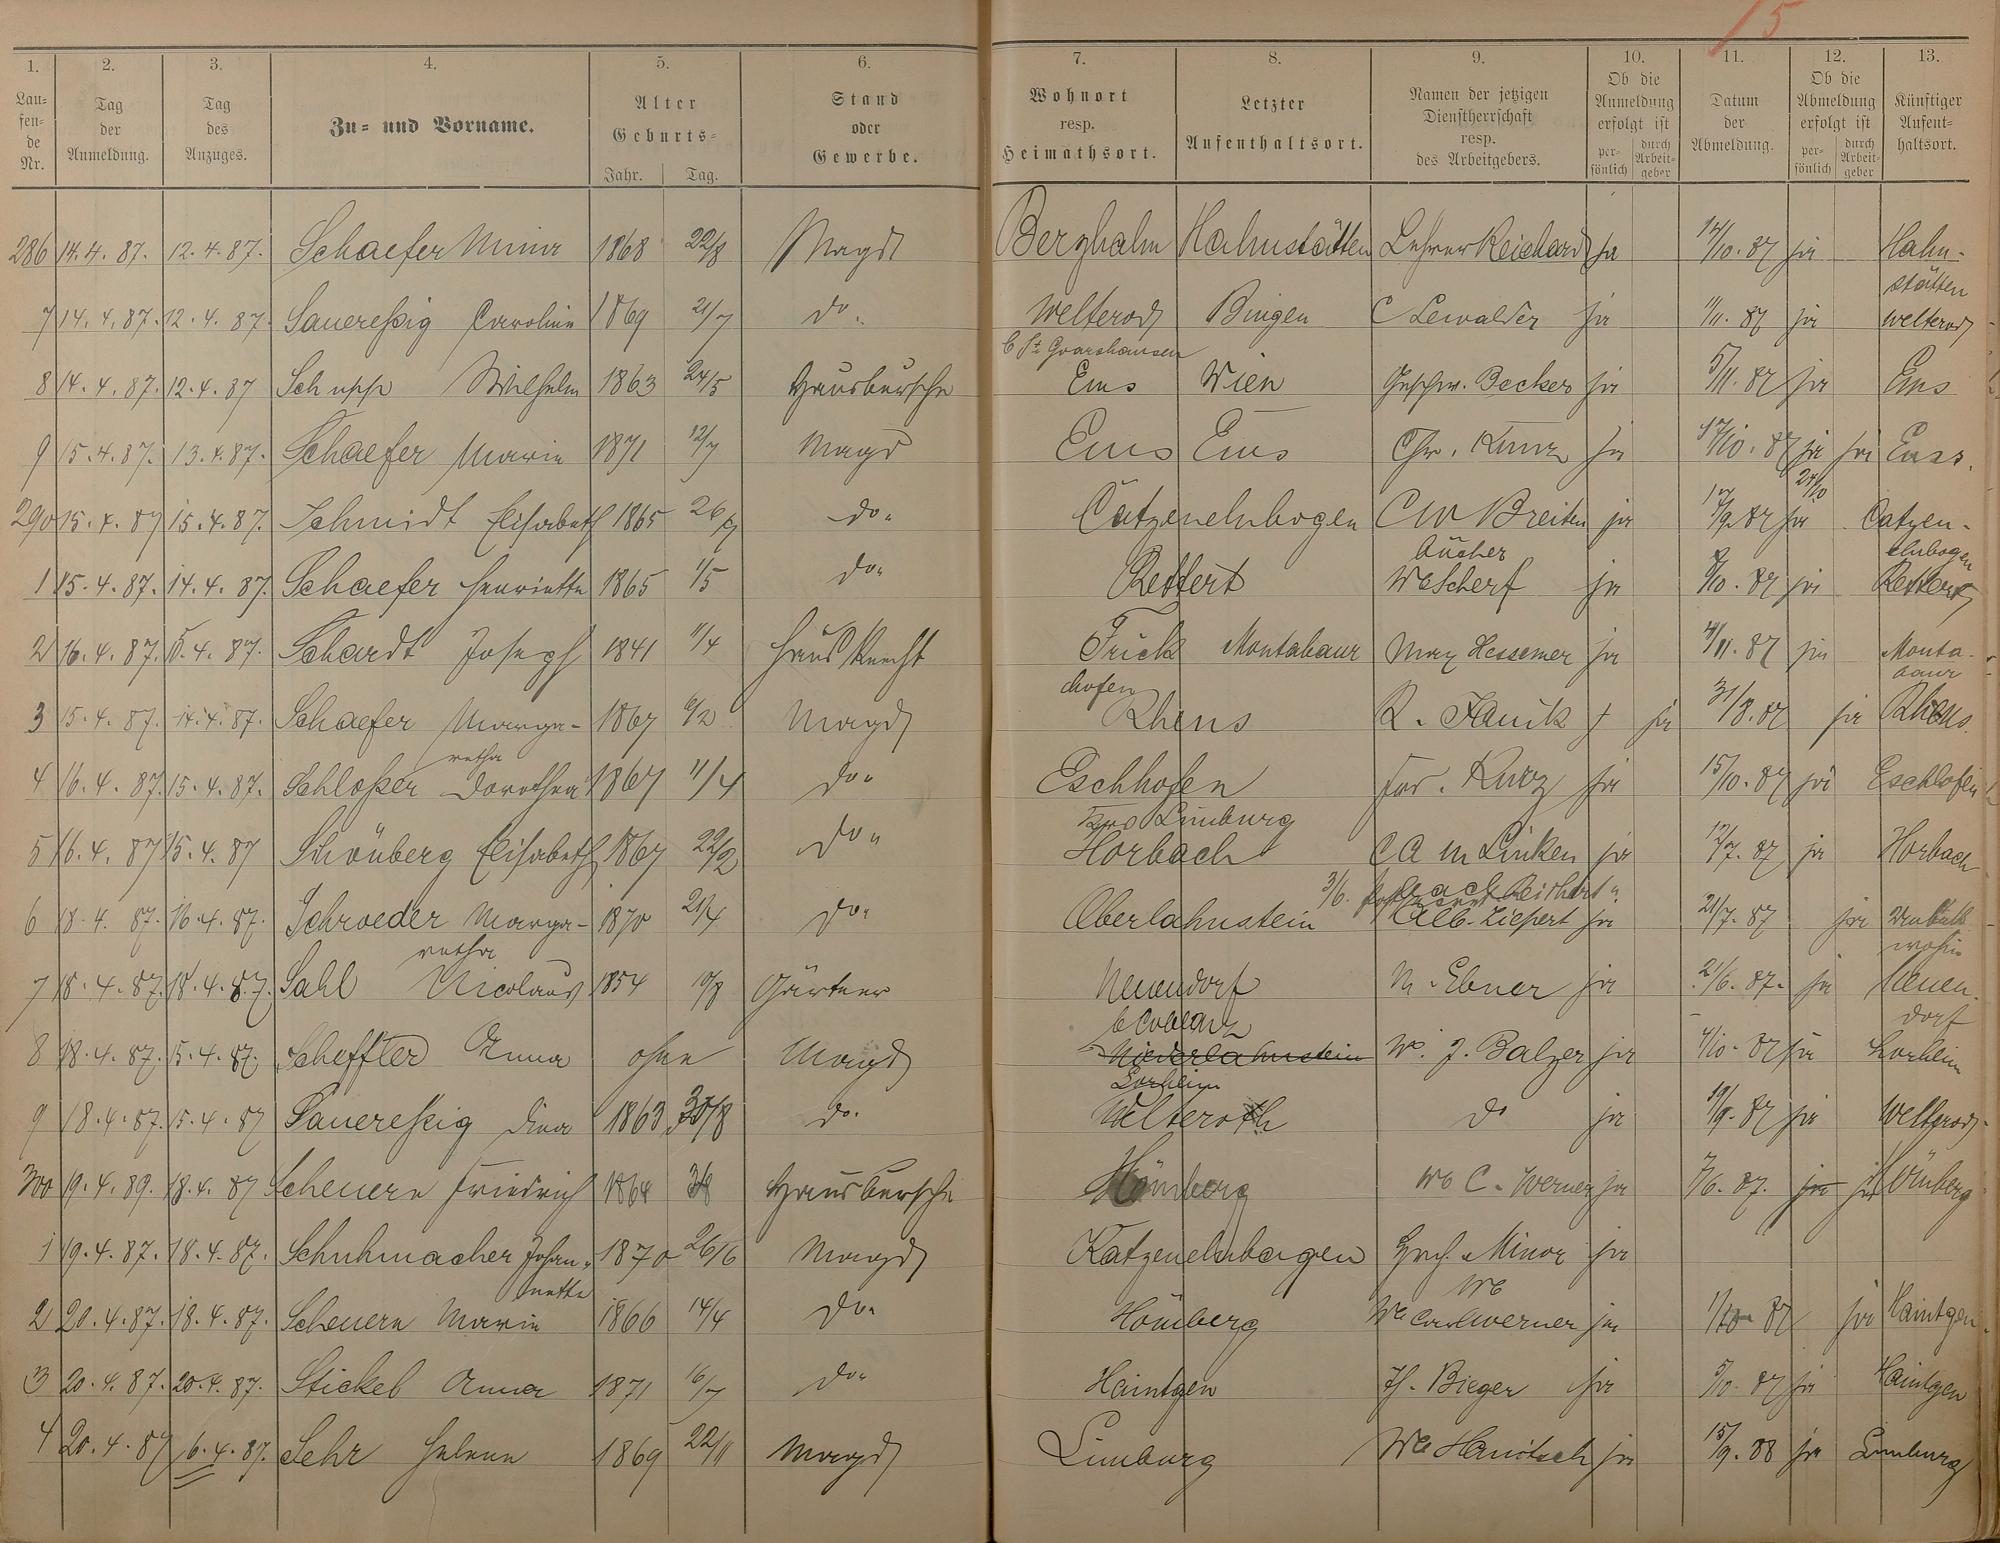 15
1. 2. 3. 4. 5. 6. 7. 8. 9. 10. 11. 12. 13.
Lau=fen=de Nr. Tag der Anmeldung. Tag des Anzuges. Zu= und Vorname. Alter Geburts= Jahr. Tag. Stand oder Gewerbe. Wohnort resp. Heimathsort. Letzter Aufenthaltsort. Namen der jetzigen Dienstherrschaft resp. des Arbeitgebers. Ob die Anmeldung erfolgt ist per=sönlich durch Arbeit=geber Datum der Abmeldung. Ob die Abmeldung erfolgt ist per=sönlich durch Arbeit=geber Künftiger Aufent=haltsort.
286 14.4.87. 12.4.87. Schaefer Minna 1868 22/8 Magd Berghahn Hahnstätten Lehrer Reichard ja 14/10.87 ja Hahn-
stätten
7 14.4.87. 12.4.87. Sauereßig Caroline 1869 21/7 do. Welterod Bingen C Lewalder ja 1/11.87 ja Welterod
b St Goarshausen
8 14.4.87. 12.4.87 Schupp Wilhelm 1863 24/5 Hausbursche Ems Wien Geschw. Becker ja 5/11.87 ja Ems
9 15.4.87. 13.4.87. Schaefer Marie 1871 12/7 Magd Ems Ems Chr. Kunz ja 17/10.87 ja ja Ems.
290 15.4.87 15.4.87. Schmidt Elisabeth 1865 26/7 do. Catzenelnbogen CW Breiten ja 17/9.87 ja Catzen-
bücher elnbogen
1 15.4.87. 14.4.87. Schaefer Henriette 1865 1/5 do. Rettert We Scherf ja 8/10.87 ja Rettert
2 16.4.87. 5.4.87. Schardt Joseph 1841 11/4 Hausknecht Frick Montabaur Max Hessemer ja 4/11.87 ja Monta-
hofen baur
3 15.4.87. 14.4.87. Schaefer Marga- 1867 6/2 Magd Rhens R. Fauik ja 31/8.87 ja Rhens.
retha
4 16.4.87. 15.4.87. Schloßer Dorothea 1867 11/4 do. Eschhofen Ferd. Kurz ja 15/10.87 ja Eschhofen
Limburg
5 16.4.87 15.4.87 Schönberg Elisabeth 1867 22/2 do. Horbach C A M Linken ja 12/7.87 ja Horbach
3/6.
6 18.4.87. 16.4.87. Schroeder Marga- 1870 21/4 do. Oberlahnstein Alb. Ziepert ja 21/7.87 ja Unbekt
retha wohin
7 18.4.87. 18.4.87. Sahl Nicolaus 1854 10/8 Gärtner Neuendorf M. Ebner ja 21/6.87. ja Neuen-
b Coblenz dorf
8 18.4.87. 15.4.87. Scheffter Anna ohne Magd Niederlahnstein W. J. Balzer ja 4/10.87 ja Lorheim
Lorheim
9 18.4.87. 15.4.87 Sauereßig Dina 1863 30/8 do. Welteroth do ja 19/9.87 ja Welterod
300 19.4.89. 18.4.87 Scheuern Friedrich 1864 3/8 Hausbursche Hömberg We C. Werner ja 7/6.87. ja ja Hömberg
1 19.4.87. 18.4.87. Schuhmacher Johan- 1870 26/6 Magd Katzenelnbogen Gesch. Minor ja
nette We
2 20.4.87. 18.4.87. Scheuern Marie 1866 14/4 do. Hömberg We Carl Werner ja 1/10.87 ja Haintgen
3 20.4.87. 20.4.87. Stickel Anna 1871 16/7 do. Haintgen H. Bieger ja 5/10.87 ja Haintgen
4 20.4.87 6.4.87. Sehr Helene 1869 22/11 Magd Limburg We Hanitsch ja 15/9.88 ja Limburg